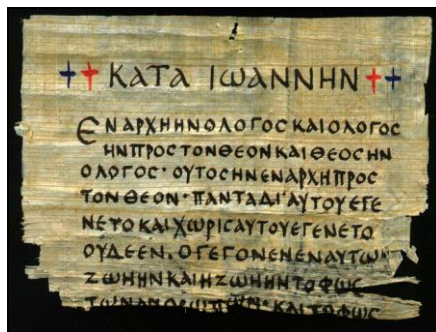 ++ ΚΑΤΑ ΙΩΑΝΝΗΝ ++
ΕΝΑΡΧΗΗΝΟΛΟΓΟϹΚΑΙΟΛΟΓΟϹ
ΗΝΠΡΟϹΤΟΝΘΕΟΝΚΑΙΘΕΟϹΗΝ
ΟΛΟΓΟϹ· ΟΥΤΟϹΗΝΕΝΑΡΧΗΠΡΟϹ
ΤΟΝΘΕΟΝ· ΠΑΝΤΑΔΙ'ΑΥΤΟΥΕΓΕ
ΝΕΤΟΚΑΙΧΩΡΙϹΑΥΤΟΥΕΓΕΝΕΤΟ
ΟΥΔΕΕΝ. ΟΓΕΓΟΝΕΝΕΝΑΥΤΩ·
ΖΩΗΗΝΚΑΙΗΖΩΗΗΝΤΟΦΩϹ
ΤΩΝΑΝΘΡΩΠΩΝ· ΚΑΙΤΟΦΩϹ